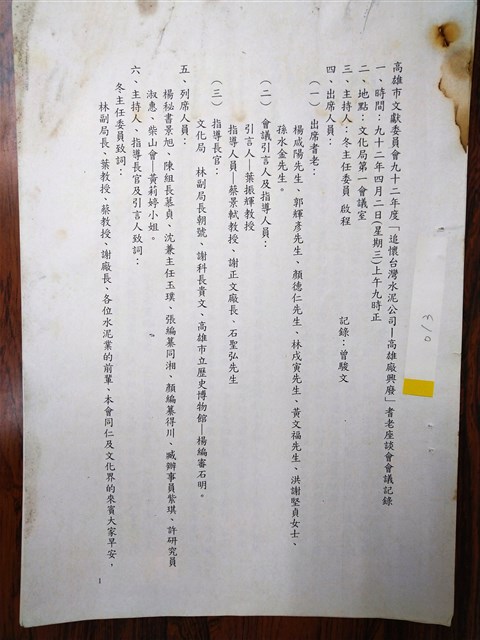 高雄市文獻委員會九十二年度「追懷台灣水泥公司—高雄廠興廢」耆老座談會會議記錄
一、時間：九十二年四月二日(星期三)上午九時正
二、地點：文化局第一會議室
三、主持人：冬主任委員 啟程 記錄：曾駿文
四、出席人員：
（一）出席耆老：
楊咸陽先生、郭輝彥先生、顏德仁先生、林戌寅先生、黃文福先生、洪謝堅貞女士、
孫水金先生。
（二）會議引言人及指導人員：
引言人—葉振輝教授
指導人員—蔡景軾教授、謝正文廠長、石聖弘先生
（三）指導長官：
文化局 林副局長朝號、謝科長貴文、高雄市立歷史博物館—楊編審石明。
五、列席人員：
楊秘書景旭、陳組長慕貞、沈兼主任玉璞、張編纂同湘、顏編纂得川、臧辦事員紫琪、許研究員
淑惠、柴山會—黃莉婷小姐。
六、主持人、指導長官及引言人致詞：
冬主任委員致詞：
林副局長、葉教授、蔡教授、謝廠長、各位水泥業的前輩、本會同仁及文化界的來賓大家早安，
1
013